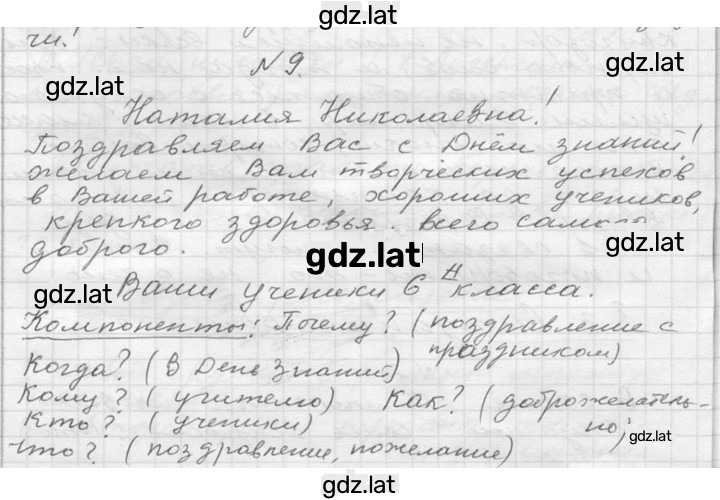 gdz.lat
чи!
gdz.lat
№ 9.
gdz.lat
Наталия Николаевна!
Поздравляем Вас с Днём знаний!
желаем Вам творческих успехов
в Вашей работе, хороших учеников,
крепкого здоровья. всего
gdz.lat
доброго.
gdz.lat
gdz.lat
Ваши ученики 6 "Н" класса.
Компоненты: Почему? (поздравление с
праздником)
Когда? (В День Знаний)
Кому? (учителю) Как? (доброжелатель-
но;
Кто? (ученики)
gdz.lat
Что? (поздравление, пожелание)
gdz.lat